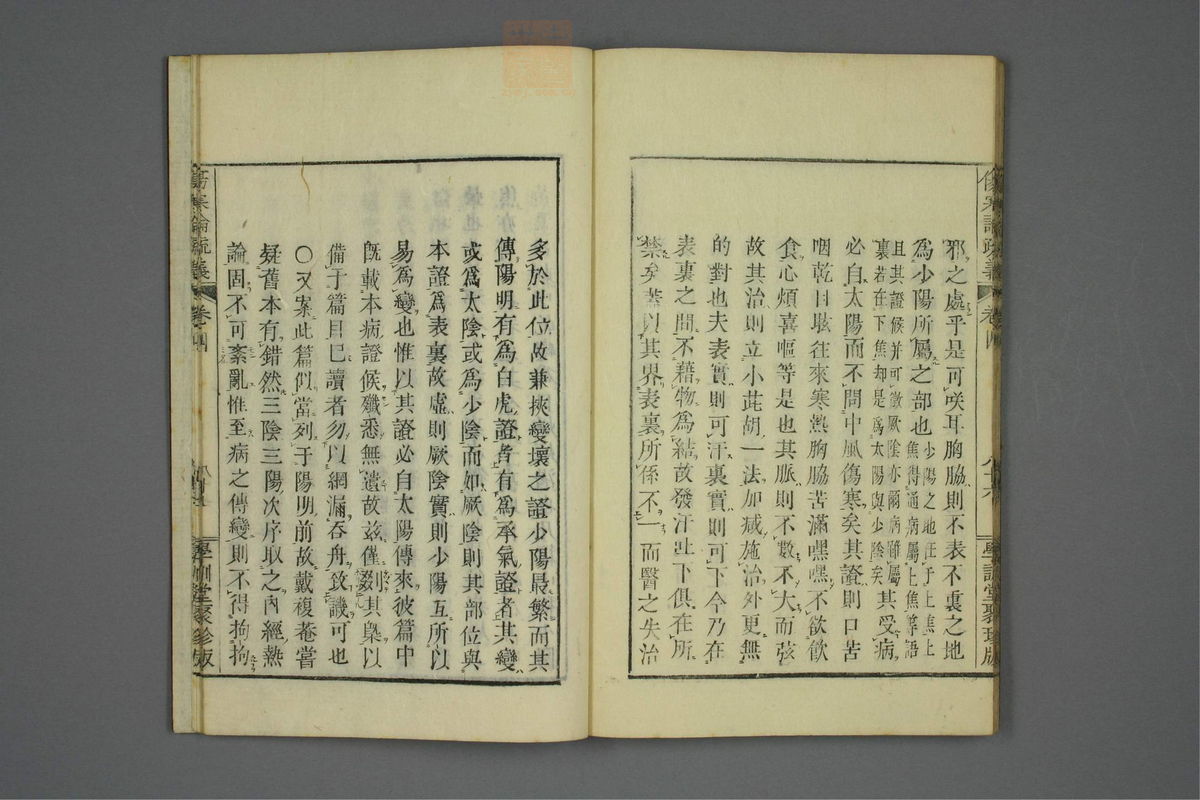 邪之處乎是可咲耳胸脇則不表不裏之地
爲少陽所屬之部也少陽之地在于上焦上
焦得通病屬上焦等語
且其證候并可徵厥陰亦爾病雖屬
裏若在下焦却是爲太陽與少陰矣其受病
必自太陽而不問中風傷寒矣其證則口苦
咽乾目眩往來寒熱胸脇苦滿嘿嘿不欲飮
食心煩喜嘔等是也其脈則不數不大而弦
故其治則立小茈胡一法加减施治外更無
的對也夫表實則可汗裏實則可下今乃在
表裏之間不藉物爲結故發汗吐下俱在所
禁矣蓋以其界表裏所係不一而醫之失治
傷寒論疏義 卷四
學訓堂聚珍版
多於此位故兼挾變壞之證少陽最繁而其
傳陽明有爲白虎證者有爲承氣證者其變
或爲太陰或爲少陰而如厥陰則其部位與
本證爲表裏故虛則厥陰實則少陽互所以
易爲變也惟以其證必自太陽傳來彼篇中
既載本病證候殲悉無遺故玆僅掇其槩以
備于篇目已讀者勿以網漏吞舟致譏可也
○又案此篇似當列于陽明前故戴複菴嘗
疑舊本有錯然三陰三陽次序取之內經熱
論固不可紊亂惟至病之傳變則不得拘拘
傷寒論疏義 卷四
學訓堂聚珍版